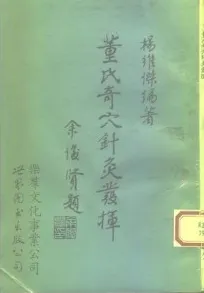 楊維傑編著
董氏奇穴針灸發揮
余俊賢題
樂群文化事業公司
世界圖書出版公司